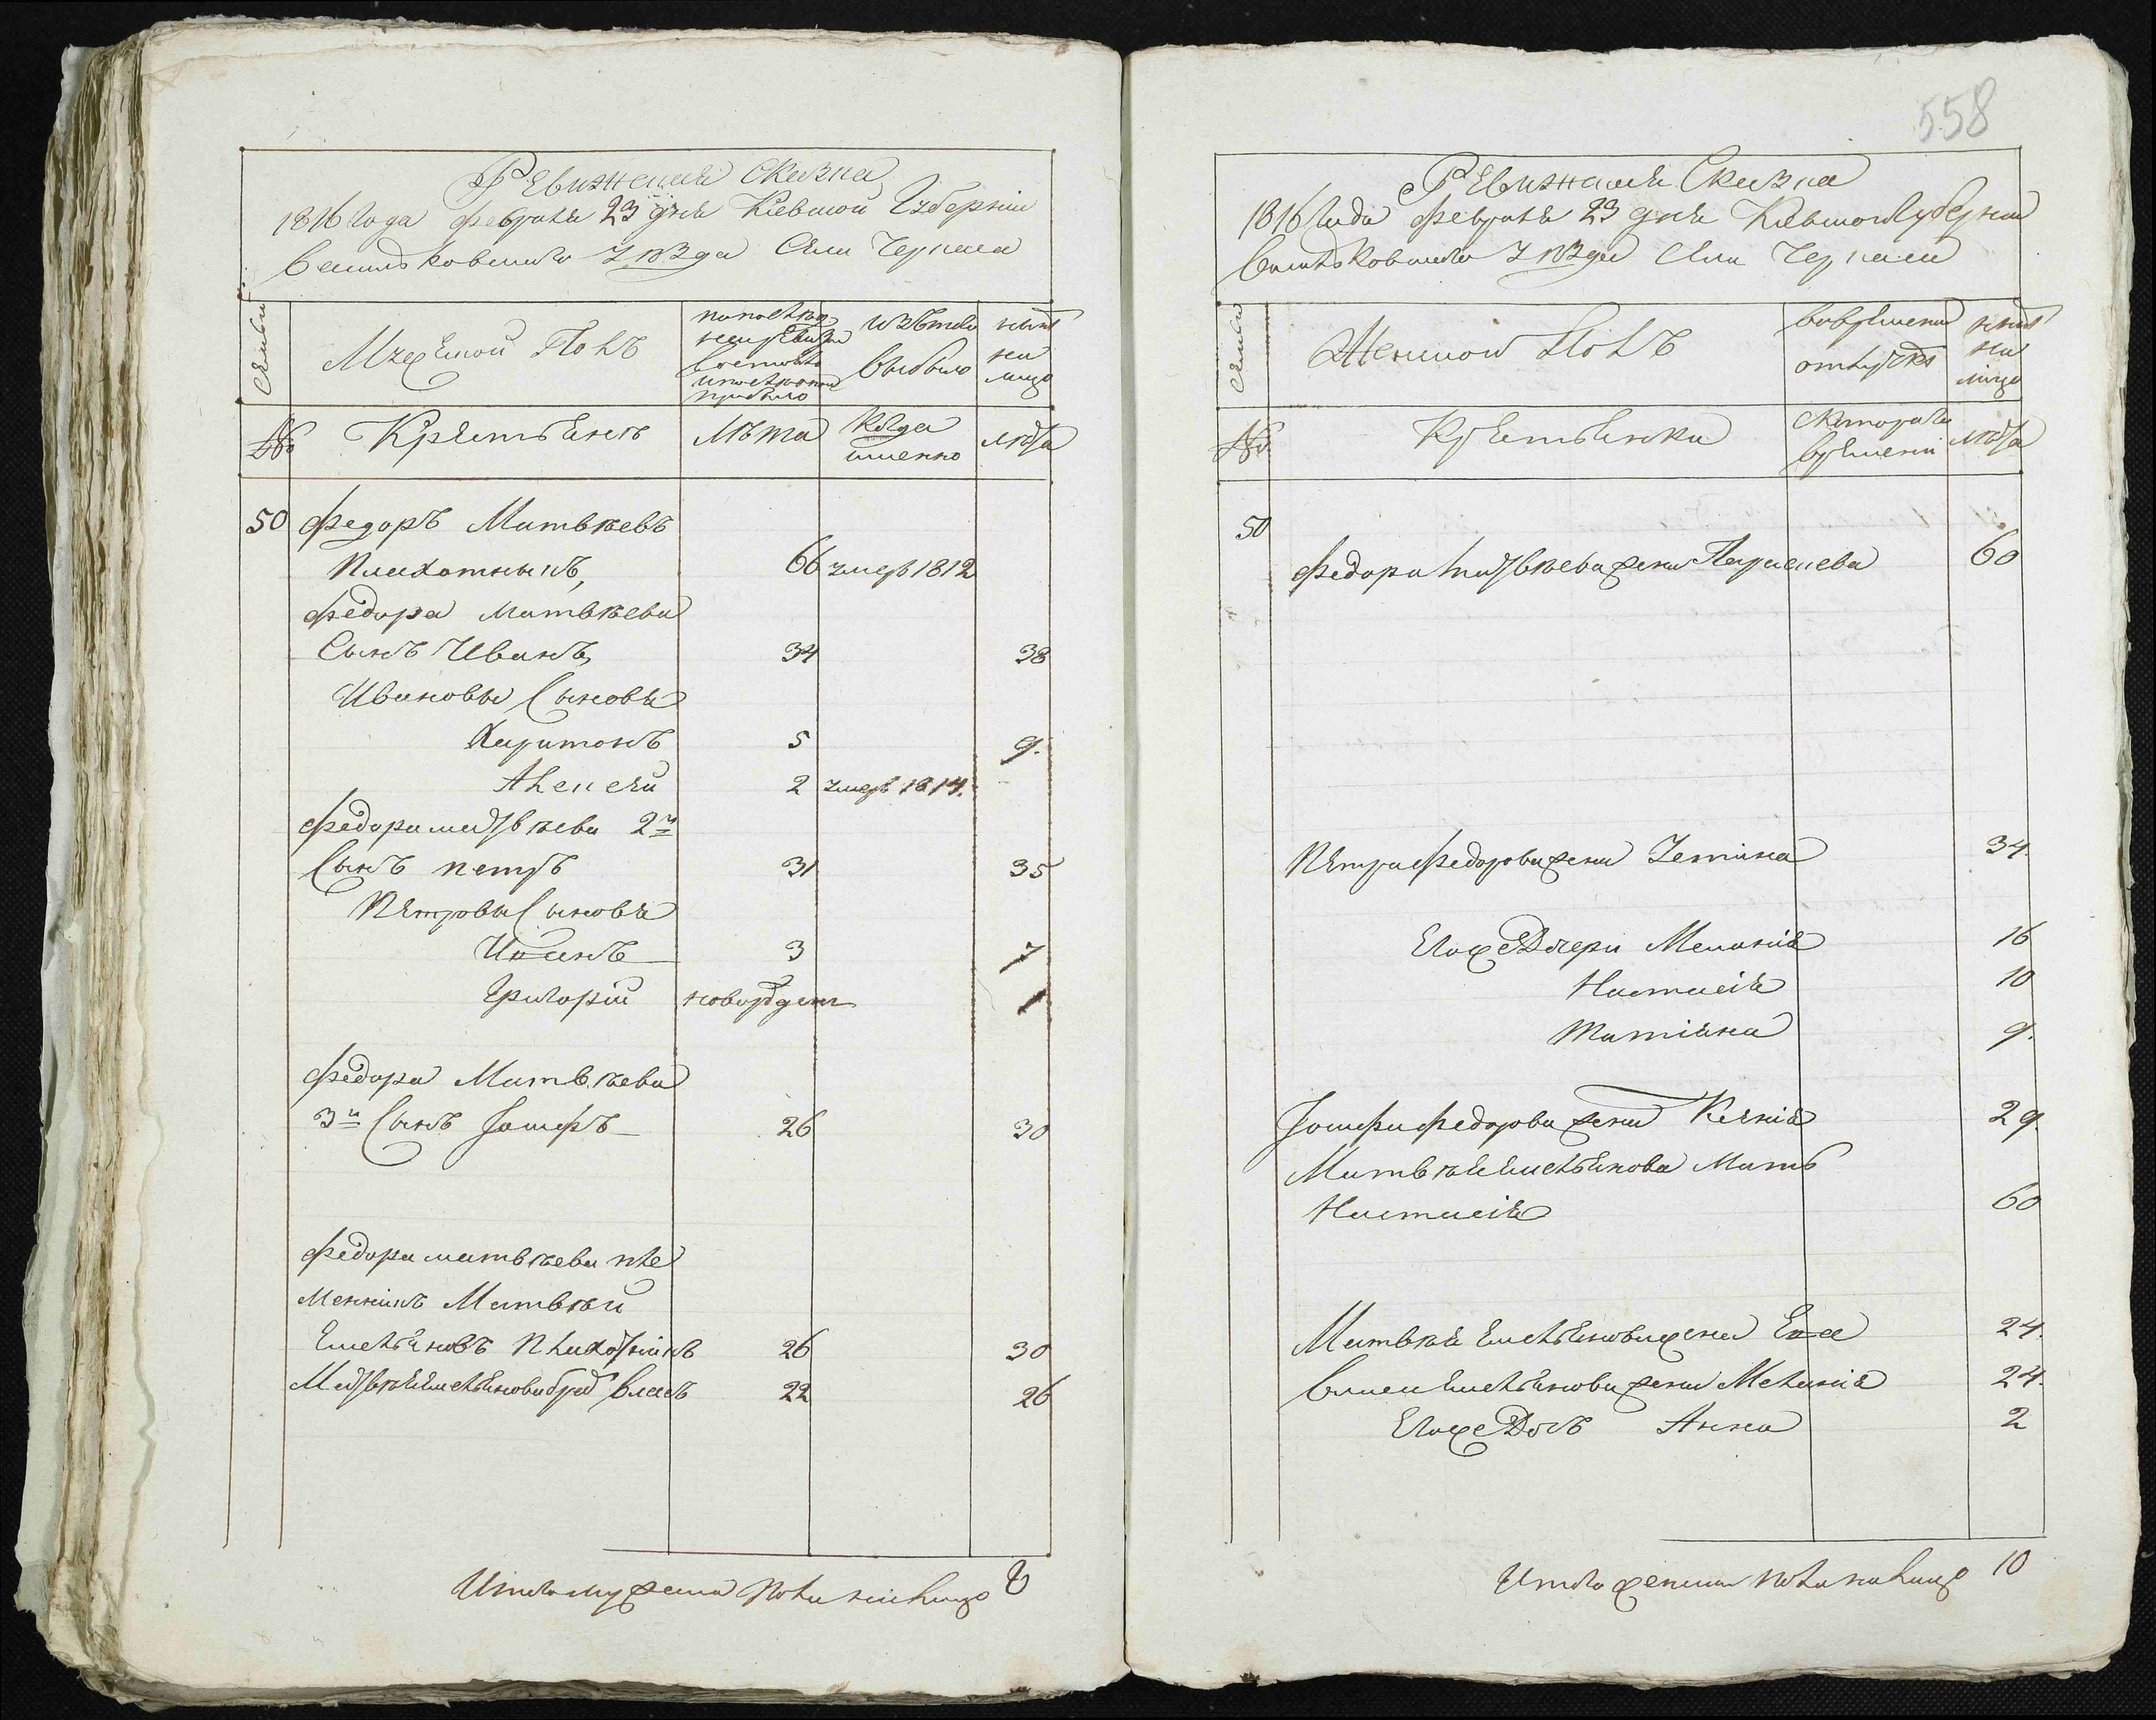 Ревижская Сказка
1816 года февраля 23 дня Киевской Губернии
Василковскаго Уезда Села Черкаса
Семьи
Мужеской Полъ
по последней
ревизии
состояло
и после оной
прибыло
Изъ того
выбыло
ныне
на
лицо
№
Крестьянъ
Лѣта
Когда
именно
Лѣта
50 Федоръ Матвѣевъ
Плахотныкъ, 66 умеръ 1812
Федора Матвѣева
Сынъ Иванъ, 34 38
Ивановы Сыновья
Харитонъ 5 9.
Алексѣй 2 умеръ 1814.
Федора матвѣева 2й
Сынъ петръ 31 35
Петровы Сыновья
3 7
Григорій новорожденъ 1
Федора Матвѣева
3й Сынъ Іосифъ 26 30
Федора матвѣева пле
менникъ Матвѣй
Емельяновъ Плахотникъ 26 30
Матвѣя Емельянова братъ Власъ 22 26
Итого мужеска пола на лицо 8
558
Ревижская Сказка
1816 Года Февраля 23 дня Киевской Губернии
Василковскаго Уезда Села Черкаса
Семьи
Женской Полъ
во временной
отлучке
ныне
на
лицо
№
Крестьянки
Скотораго
времени
Лѣта
50
Федора матвѣева жена Параскева 60
Петра Федорова жена Устина 34.
Егоже Дочери Меланія 16
Настасія 10
Татіяна 9.
Іосифа Федорова жена Ксенія 29.
Матвѣя Емельянова Мать
Настасія 60
Матвѣя Емельянова жена Ева 24.
Власа Емельянова жена Меланія 24.
Егоже Дочь Анна 2
Итого женска пола на лицо 10